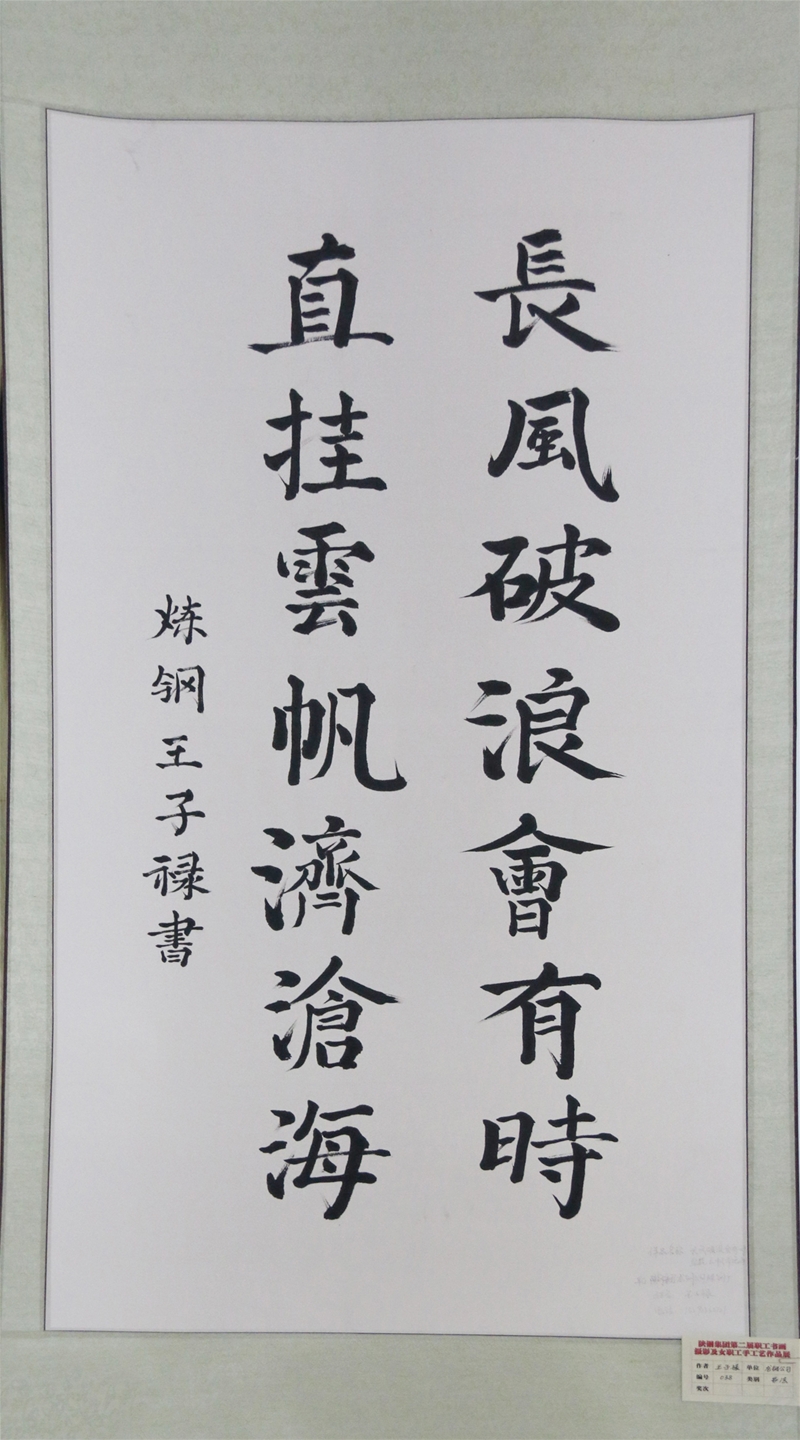 長風破浪會有時
直挂雲帆濟滄海
炼钢王子禄書
陕钢集团第二届职工书画
摄影及女职工手工艺作品展
作者 王子禄 单位
编号 类别 书法
奖次